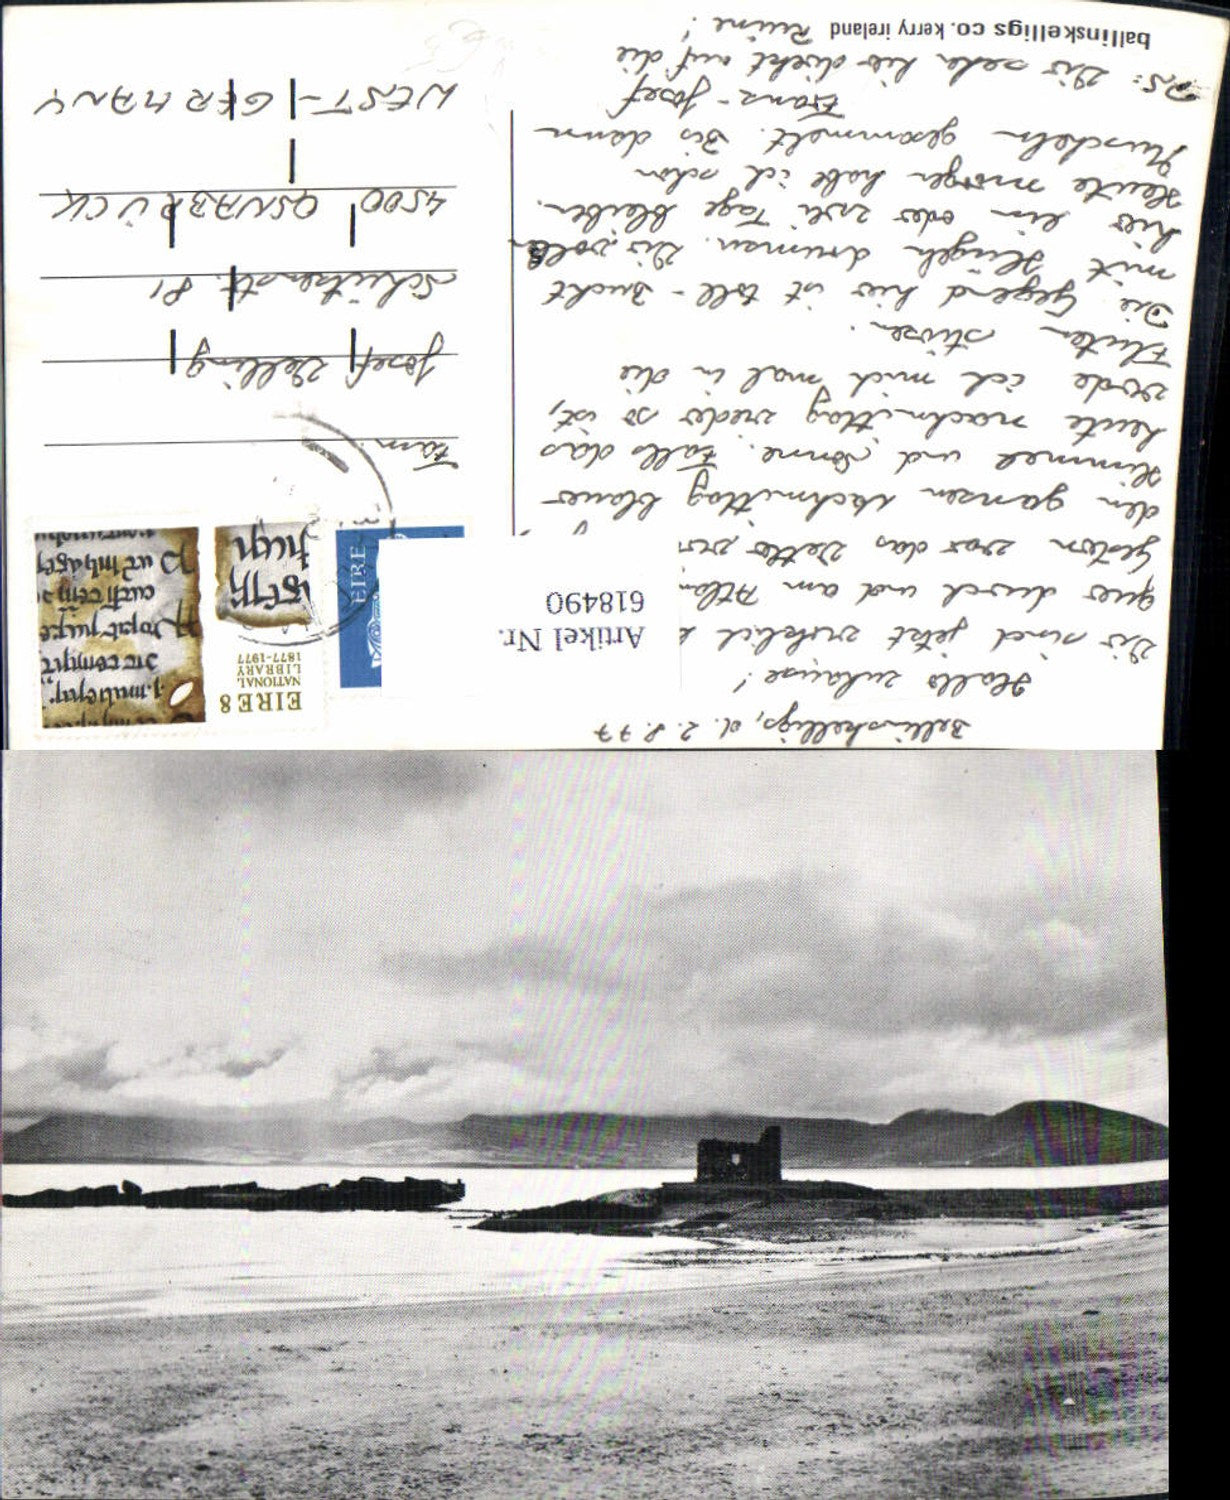 Bellinskelligs, d. 2.8.77
Hallo zuhause!
Wir sind jetzt wirklich
quer durch und am Atlan
Gestern war das Wetter
den ganzen Nachmittag blauer
Himmel und Sonne. Falls das
heute nachmittag wieder so ist,
werde ich mich mal in die
Fluten stürzen.
Die Gegend hier ist toll - Bucht
mit Hügeln druman. Wir wollen
hier ein oder zwei Tage bleiben.
Heute morgen habe ich schon
Muscheln gesammelt. Bis dann
Franz-Josef
P.S: Wir sehn hier direkt auf die
Ruine!
ballinskelligs co. kerry ireland
Artikel Nr.
618490
EIRE
EIRE 8
NATIONAL
LIBRARY
1877-1977
Fam.
Josef Welling
Schützenstr. 81
4500 OSNABRÜCK
WEST-GERMANY